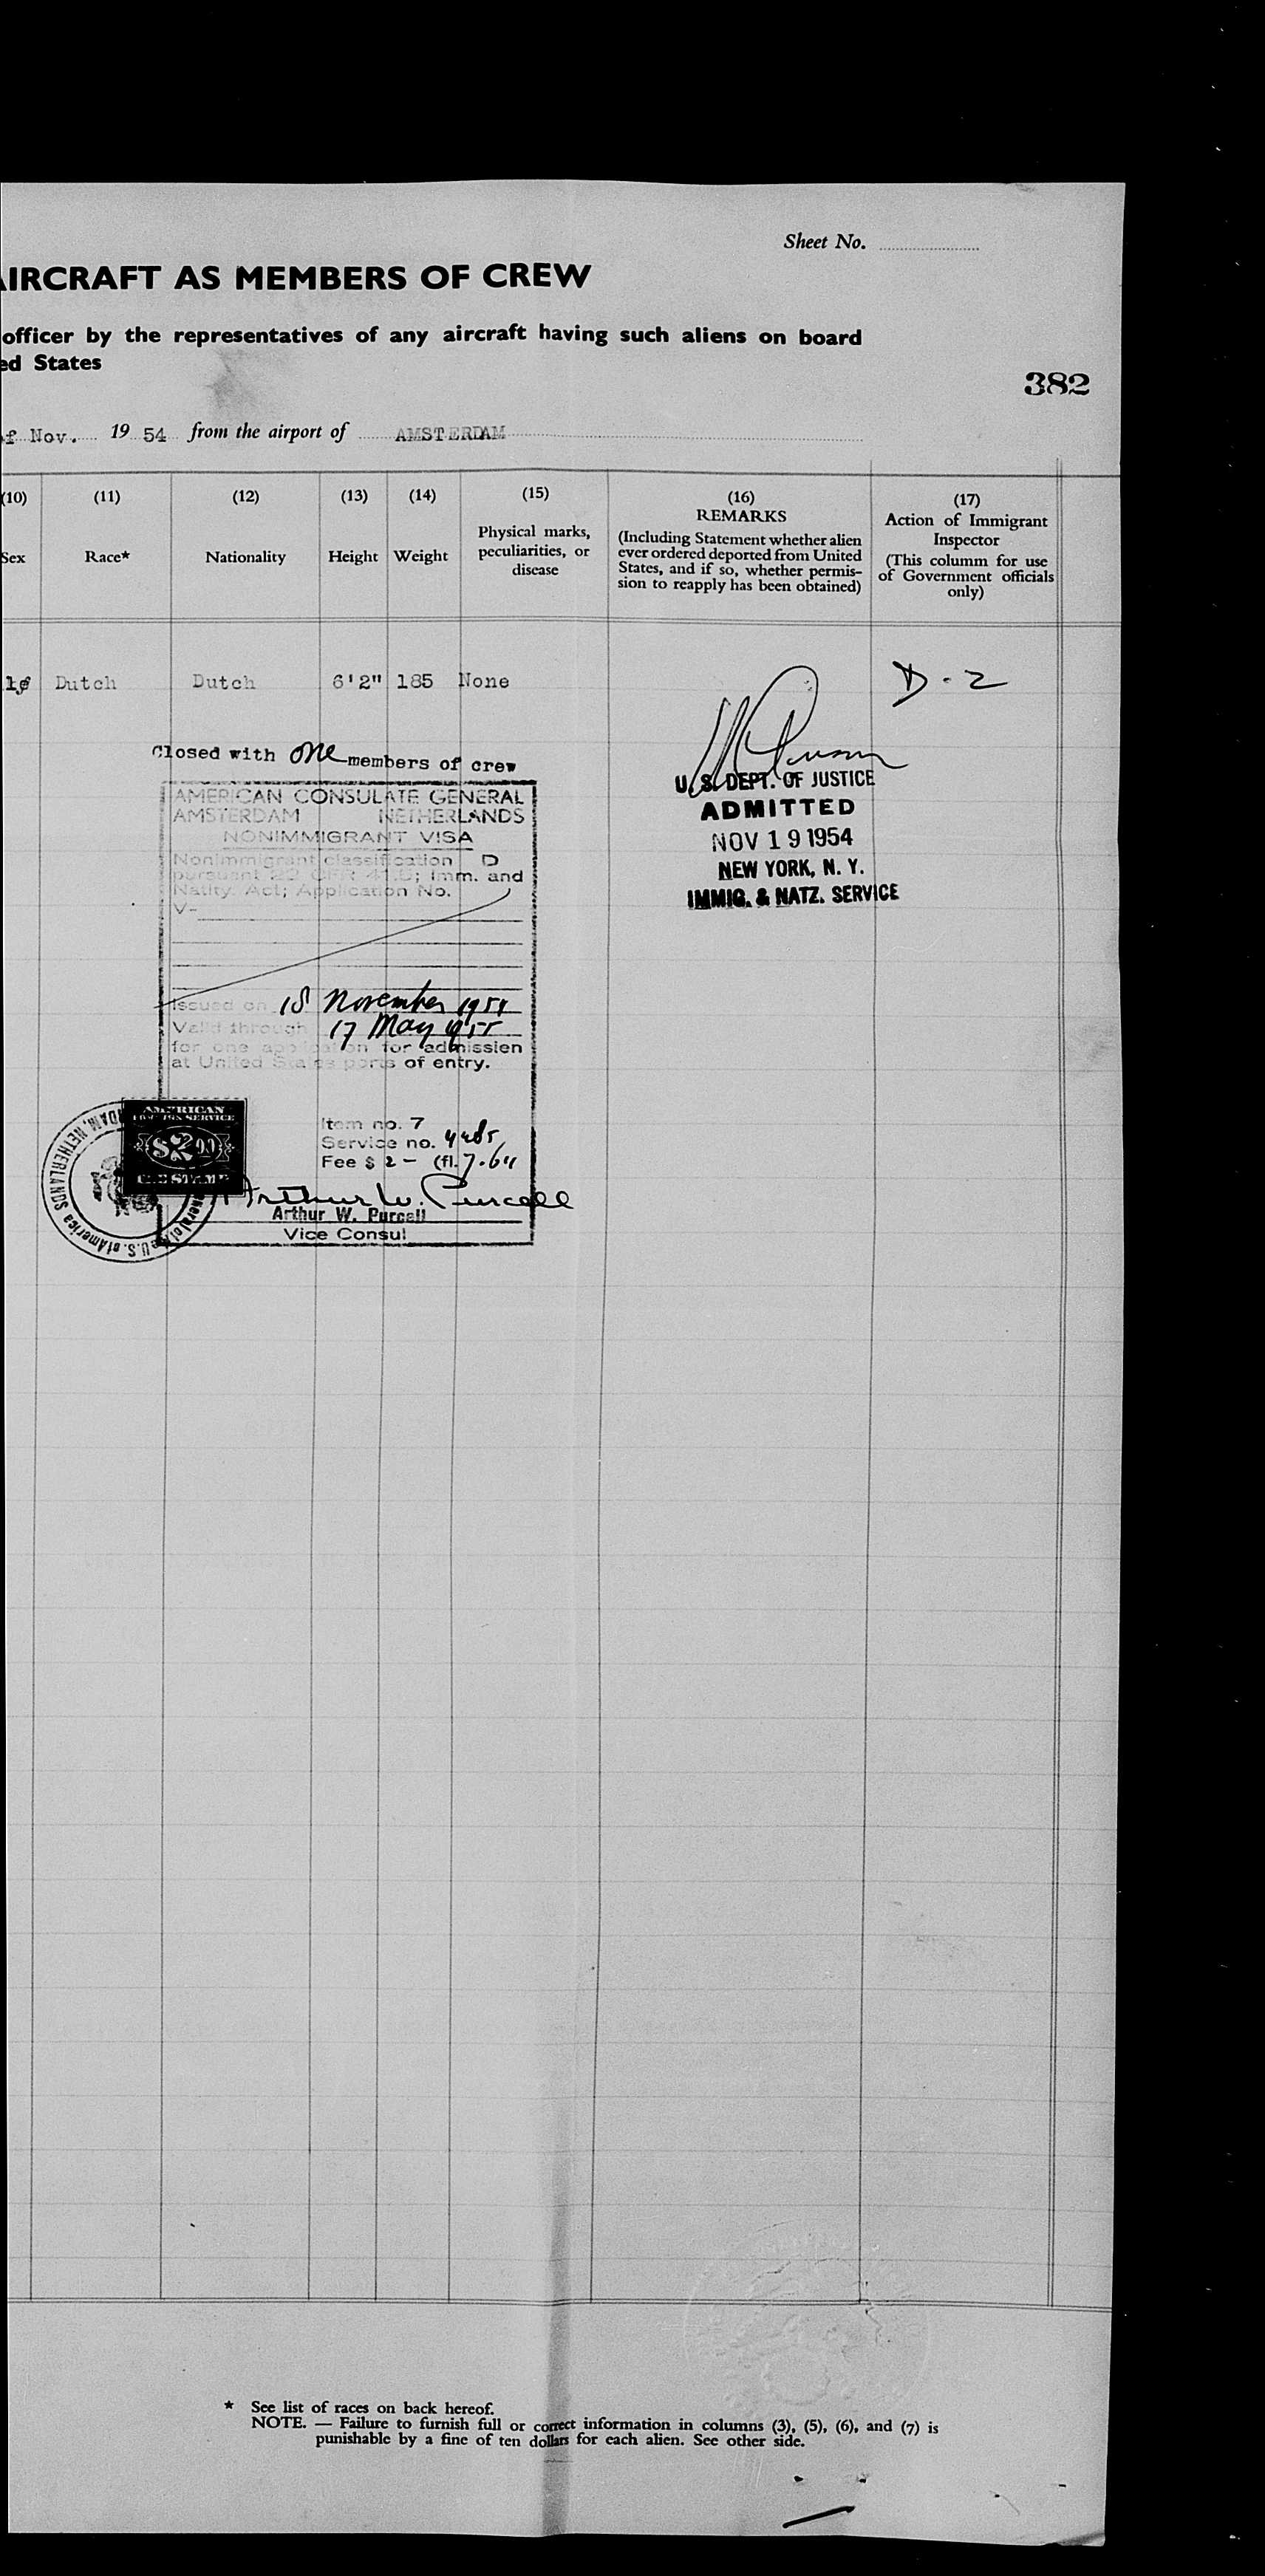 Sheet No.
AIRCRAFT AS MEMBERS OF CREW
officer by the representatives of any aircraft having such aliens on board
ed States
382
of Nov. 19 54 from the airport of AMSTERDAM
(10) (11) (12) (13) (14) (15) (16) (17)
Sex Race* Nationality Height Weight Physical marks, peculiarities, or disease
REMARKS
(Including Statement whether alien
ever ordered deported from United
States, and if so, whether permis-
sion to reapply has been obtained)
Action of Immigrant
Inspector
(This column for use
of Government officials
only)
Dutch Dutch 6'2" 185 None
D-2
Closed with one members of crew
AMERICAN CONSULATE GENERAL
AMSTERDAM NETHERLANDS
NONIMMIGRANT VISA
Nonimmigrant classification D
pursuant 22 CFR 41.5; Imm. and
Natlty. Act; Application No.
V-
Issued on 18 November 1954
Valid through 17 May 1955
for one application for admission
at United States ports of entry.
U.S. DEPT. OF JUSTICE
ADMITTED
NOV 19 1954
NEW YORK, N. Y.
IMMIG. & NATZ. SERVICE
AMERICAN
FOREIGN SERVICE
$2.00
FEE STAMP
Item no. 7
Service no. 4485
Fee $ 2 - (fl. 7.64
Arthur W. Purcell
Arthur W. Purcell
Vice Consul
* See list of races on back hereof.
NOTE. — Failure to furnish full or correct information in columns (3), (5), (6), and (7) is
punishable by a fine of ten dollars for each alien. See other side.